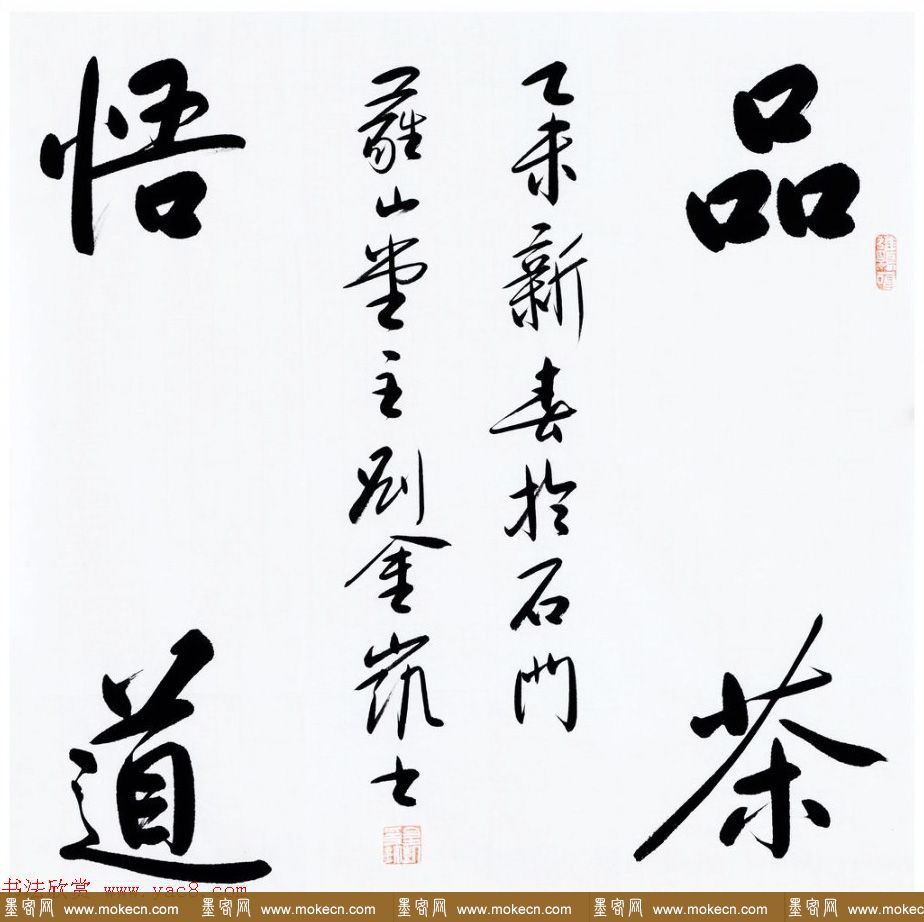 品茶
乙未新春於石門
羅山堂主劉金凱士
悟道
书法欣赏 www.yac8.com
墨客网 www.mokecn.com 墨客网 www.mokecn.com 墨客网 www.mokecn.com 墨客网 www.mokecn.com 墨客网 www.mokecn.com